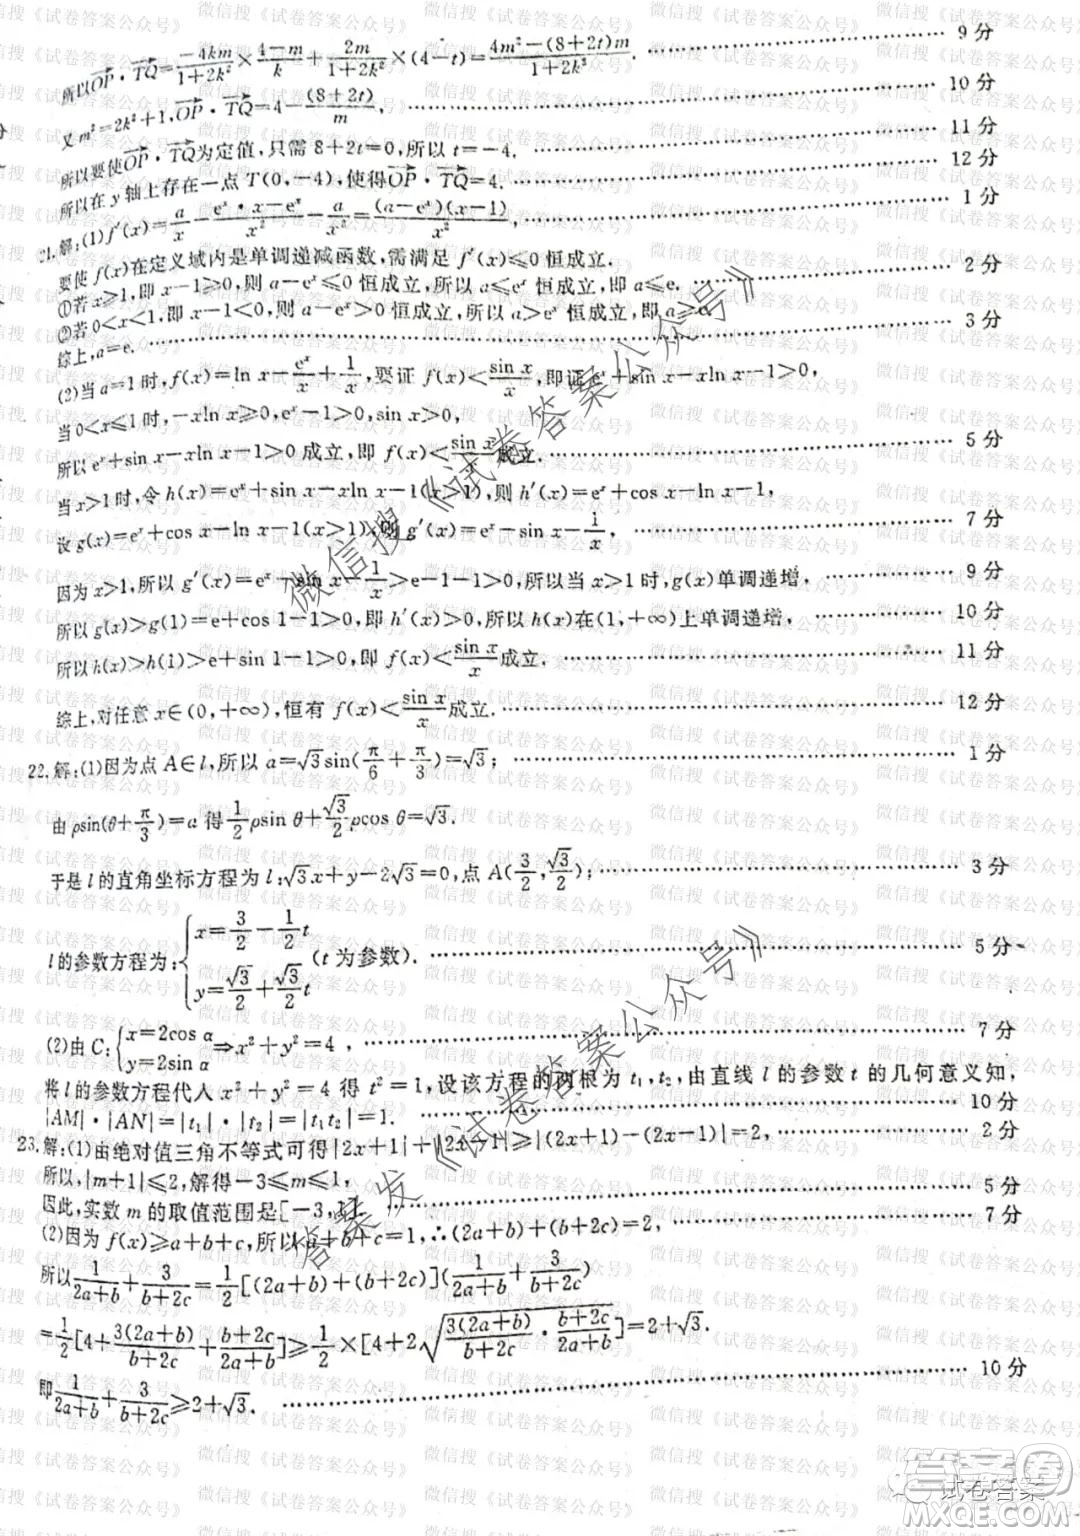 所以OP·TQ=-4km/(1+2k²)×(4-m)/k+2m/(1+2k²)×(4-t)=(4m²-(8+2t)m)/(1+2k²). 9分
又m²=2k²+1,OP·TQ=4-(8+2t)/m, 10分
所以要使OP·TQ为定值,只需8+2t=0,所以t=-4. 11分
所以在y轴上存在一点T(0,-4),使得OP·TQ=4. 12分
21.解:(1)f′(x)=a/x-(eˣ·x-eˣ)/x²-a/x²=(a-eˣ)(x-1)/x², 1分
要使f(x)在定义域内是单调递减函数,需满足f′(x)≤0恒成立.
①若x≥1,即x-1≥0,则a-eˣ≤0恒成立,所以a≤eˣ恒成立,即a≤e. 2分
②若0<x<1,即x-1<0,则a-eˣ>0恒成立,所以a>eˣ恒成立,即a≥e.
综上,a=e. 3分
(2)当a=1时,f(x)=ln x-eˣ/x+1/x,要证f(x)<sin x/x,即证eˣ+sin x-xln x-1>0,
当0<x≤1时,-xln x≥0,eˣ-1>0,sin x>0,
所以eˣ+sin x-xln x-1>0成立,即f(x)<sin x/x成立. 5分
当x>1时,令h(x)=eˣ+sin x-xln x-1(x>1),则h′(x)=eˣ+cos x-ln x-1,
设g(x)=eˣ+cos x-ln x-1(x>1),则g′(x)=eˣ-sin x-1/x, 7分
因为x>1,所以g′(x)=eˣ-sin x-1/x>e-1-1>0,所以当x>1时,g(x)单调递增, 9分
所以g(x)>g(1)=e+cos 1-1>0,即h′(x)>0,所以h(x)在(1,+∞)上单调递增, 10分
所以h(x)>h(1)>e+sin 1-1>0,即f(x)<sin x/x成立. 11分
综上,对任意x∈(0,+∞),恒有f(x)<sin x/x成立. 12分
22.解:(1)因为点A∈l,所以a=√3sin(π/6+π/3)=√3; 1分
由ρsin(θ+π/3)=a得1/2ρsin θ+√3/2ρcos θ=√3.
于是l的直角坐标方程为l:√3x+y-2√3=0,点A(3/2,√3/2); 3分
l的参数方程为:{x=3/2-1/2t
y=√3/2+√3/2t (t为参数). 5分
(2)由C:{x=2cos α
y=2sin α⇒x²+y²=4, 7分
将l的参数方程代入x²+y²=4得t²=1,设该方程的两根为t₁,t₂,由直线l的参数t的几何意义知,
|AM|·|AN|=|t₁|·|t₂|=1. 10分
23.解:(1)由绝对值三角不等式可得|2x+1|+|2x-1|≥|(2x+1)-(2x-1)|=2, 2分
所以,|m+1|≤2,解得-3≤m≤1,
因此,实数m的取值范围是[-3,1]. 5分
(2)因为f(x)≥a+b+c,所以a+b+c=1,∴(2a+b)+(b+2c)=2, 7分
所以1/(2a+b)+3/(b+2c)=1/2[(2a+b)+(b+2c)](1/(2a+b)+3/(b+2c))
=1/2[4+3(2a+b)/(b+2c)+(b+2c)/(2a+b)]≥1/2×[4+2√(3(2a+b)/(b+2c)·(b+2c)/(2a+b))]=2+√3.
即1/(2a+b)+3/(b+2c)≥2+√3. 10分
微信搜《试卷答案公众号》
答案发《试卷答案公众号》
试卷答案
答案圈
MXQE.COM